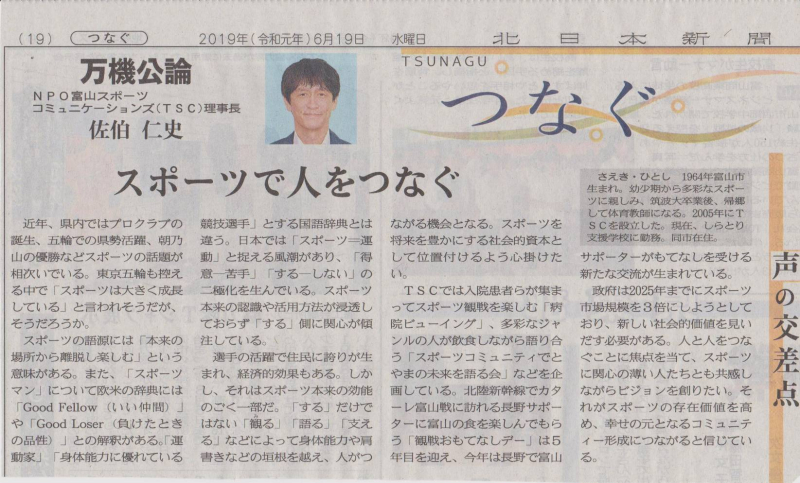 (19)
つなぐ
2019年(令和元年)6月19日 水曜日
北日本新聞
万機公論
NPO富山スポーツ
コミュニケーションズ(TSC)理事長
佐伯 仁史
TSUNAGU
つなぐ
スポーツで人をつなぐ
さえき・ひとし 1964年富山市
生まれ。幼少期から多彩なスポー
ツに親しみ、筑波大卒業後、帰郷
して体育教師になる。2005年にT
SCを設立した。現在、しらとり
支援学校に勤務。同市在住。
声の交差点
近年、県内ではプロクラブの
誕生、五輪での県勢活躍、朝乃
山の優勝などスポーツの話題が
相次いでいる。東京五輪も控え
る中で「スポーツは大きく成長
している」と言われそうだが、
そうだろうか。
スポーツの語源には「本来の
場所から離脱し楽しむ」という
意味がある。また、「スポーツ
マン」について欧米の辞典には
「Good Fellow(いい仲間)」
や「Good Loser(負けたとき
の品性)」との解釈がある。「運
動家」「身体能力に優れている
競技選手」とする国語辞典とは
違う。日本では「スポーツ=運
動」と捉える風潮があり、「得
意―苦手」「する―しない」の
二極化を生んでいる。スポーツ
本来の認識や活用方法が浸透し
ておらず「する」側に関心が傾
注している。
選手の活躍で住民に誇りが生
まれ、経済的効果もある。しか
し、それはスポーツ本来の効能
のごく一部だ。「する」だけで
はない「観る」「語る」「支え
る」などによって身体能力や肩
書きなどの垣根を越え、人がつ
ながる機会となる。スポーツを
将来を豊かにする社会的資本と
して位置付けるよう心掛けた
い。
TSCでは入院患者らが集ま
ってスポーツ観戦を楽しむ「病
院ビューイング」、多彩なジャ
ンルの人が飲食しながら語り合
う「スポーツコミュニティでと
やまの未来を語る会」などを企
画している。北陸新幹線でカタ
ーレ富山戦に訪れる長野サポー
ターに富山の食を楽しんでもら
う「観戦おもてなしデー」は5
年目を迎え、今年は長野で富山
サポーターがもてなしを受ける
新たな交流が生まれている。
政府は2025年までにスポーツ
市場規模を3倍にしようとして
おり、新しい社会的価値を見い
だす必要がある。人と人をつな
ぐことに焦点を当て、スポーツ
に関心の薄い人たちとも共感し
ながらビジョンを創りたい。そ
れがスポーツの存在価値を高
め、幸せの元となるコミュニテ
ィー形成につながると信じてい
る。